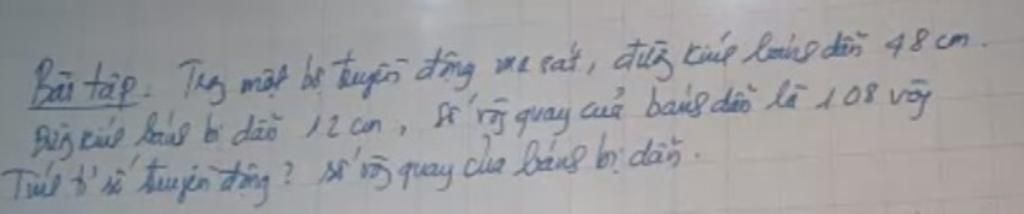 Bài tập. Trg một bộ truyền động ma sát, đường kính bánh dẫn 48 cm.
Đường kính bánh bị dẫn 12 cm, số vòg quay của bánh dẫn là 108 vòg
Tính tỉ số truyền động? số vòg quay của bánh bị dẫn.